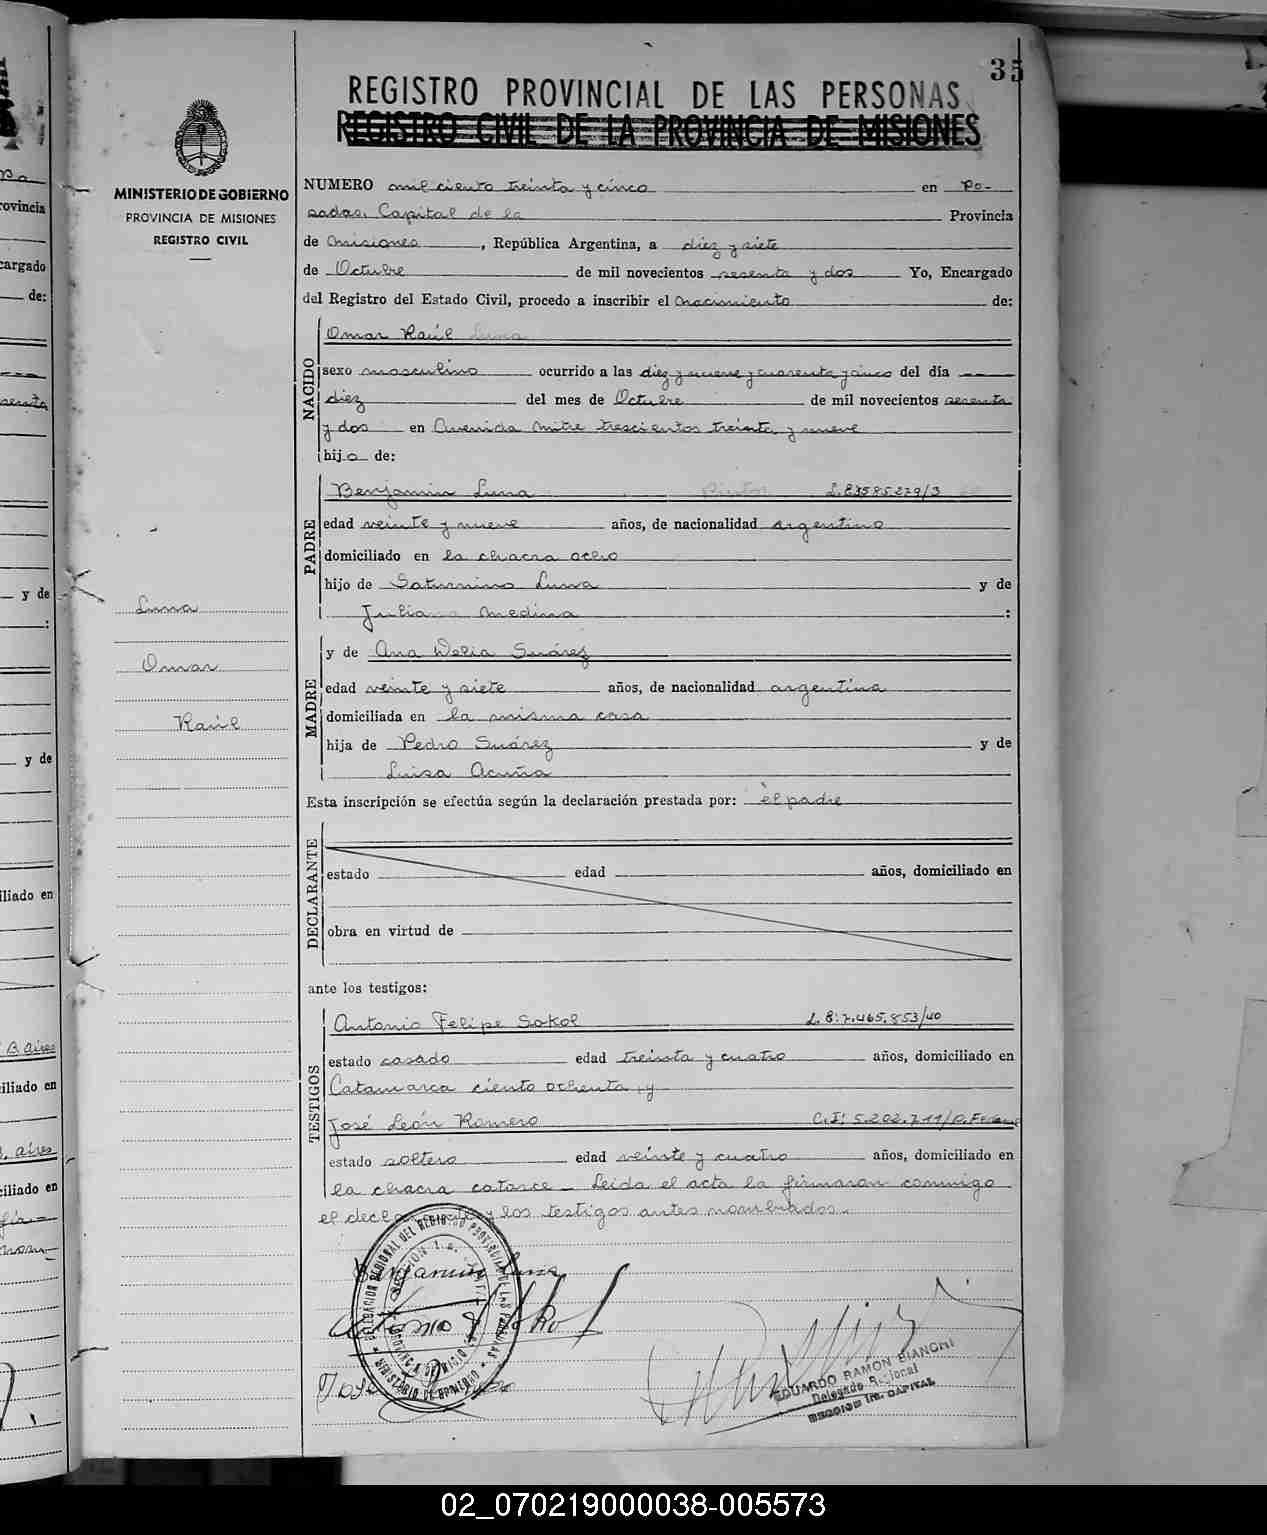 35
REGISTRO PROVINCIAL DE LAS PERSONAS
REGISTRO CIVIL DE LA PROVINCIA DE MISIONES
MINISTERIO DE GOBIERNO
PROVINCIA DE MISIONES
REGISTRO CIVIL
NUMERO mil ciento treinta y cinco en Po-
sadas, Capital de la Provincia
de Misiones, República Argentina, a diez y siete
de Octubre de mil novecientos sesenta y dos Yo, Encargado
del Registro del Estado Civil, procedo a inscribir el nacimiento de:
NACIDO
Omar Raúl Luna
sexo masculino ocurrido a las diez y nueve y cuarenta y cinco del día
diez del mes de Octubre de mil novecientos sesenta
y dos en Avenida Mitre trescientos treinta y nueve
hijo de:
PADRE
Benjamin Luna
edad veinte y nueve años, de nacionalidad argentino
domiciliado en la chacra ocho
hijo de Saturnino Luna y de
Juliana Medina :
MADRE
y de Ana Delia Suárez
edad veinte y siete años, de nacionalidad argentina
domiciliada en la misma casa
hija de Pedro Suárez y de
Luisa Acuña
Luna
Omar
Raúl
Esta inscripción se efectúa según la declaración prestada por: el padre
DECLARANTE
estado edad años, domiciliado en
obra en virtud de
ante los testigos:
TESTIGOS
Antonio Felipe Sokol L.E:7.465.853/40
estado casado edad treinta y cuatro años, domiciliado en
Catamarca ciento ochenta, y
José León Romero C.I: 5.202.711/P.
estado soltero edad veinte y cuatro años, domiciliado en
la chacra catorce_ Leída el acta la firmaron conmigo
el declarante y los testigos antes nombrados.
Benjamin Luna
EDUARDO RAMON BIANCHI
Delegado Regional
SECCION 1ra. CAPITAL
02_070219000038-005573